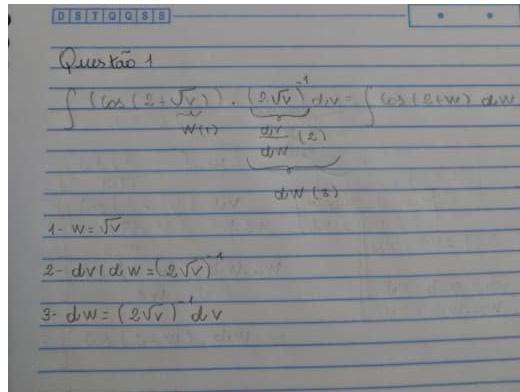 D S T Q Q S S
Questão 1
∫ (cos (2+√v)) · (2√v)⁻¹ dv = ∫ cos (2+w) dw
w(1)
dv/dw (2)
dw (3)
1- w = √v
2- dv/dw = (2√v)⁻¹
3- dw = (2√v)⁻¹ dv